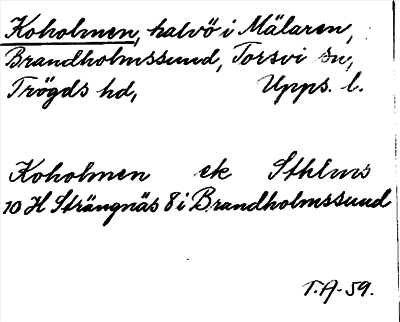 Koholmen, halvö i Mälaren,
Brandholmssund, Torsvi sn,
Trögds hd, Upps. l.
Koholmen ek Sthlms
10 H Strängnäs 8 i Brandholmssund
T.A-59.